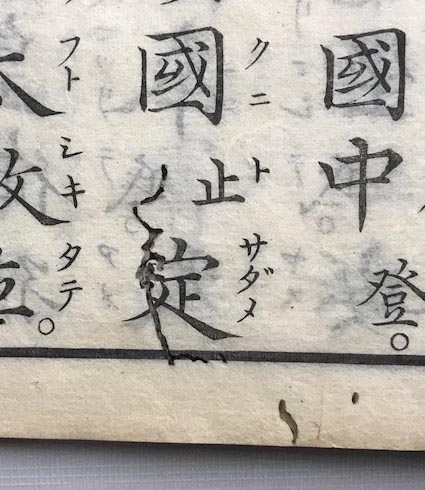 國中登。
クニトサダメ
國止定
フトシキタテ
太敷立。